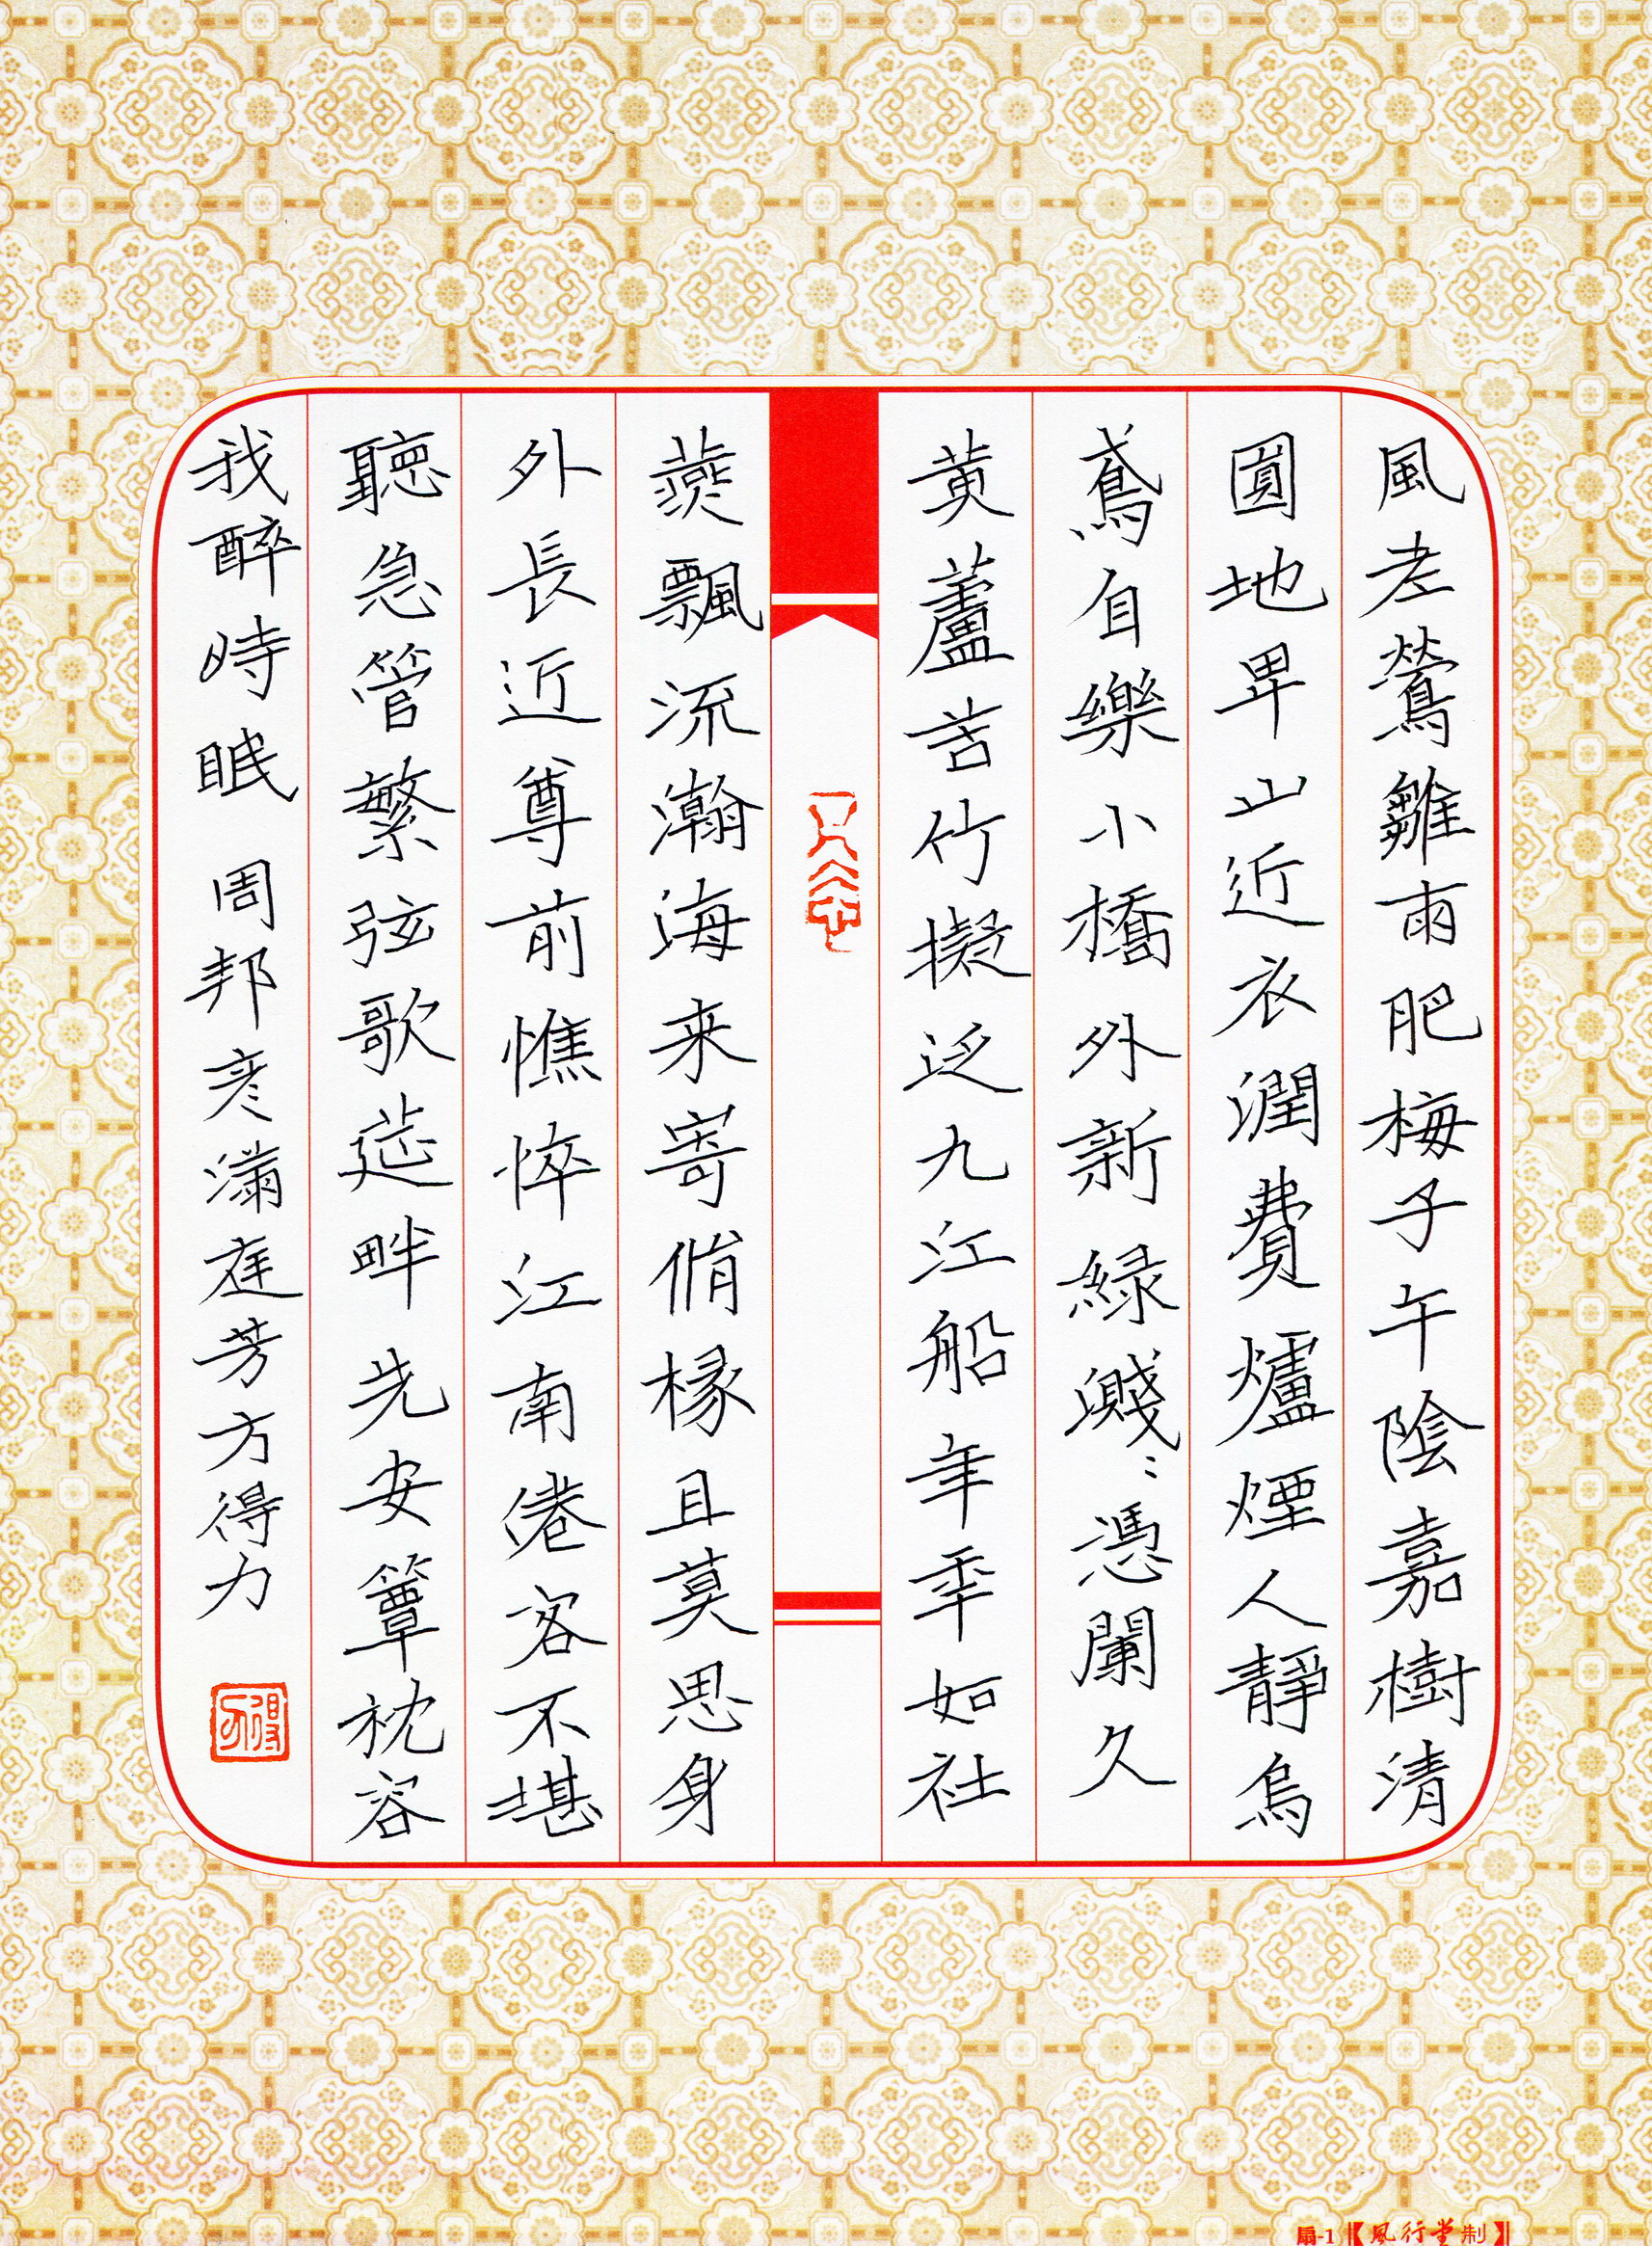 風老鶯雛雨肥梅子午陰嘉樹清
圓地卑山近衣潤費爐煙人靜烏
鳶自樂小橋外新綠濺〻憑闌久
黄蘆苦竹擬泛九江船年年如社
燕飄流瀚海来寄脩椽且莫思身
外長近尊前憔悴江南倦客不堪
聽急管繁弦歌筵畔先安簟枕容
我醉時眠 周邦彦滿庭芳方得力
扇-1【風行堂制】